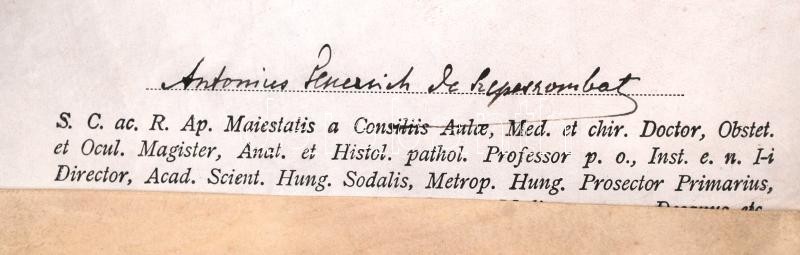 Antonius Genersich de Szepesszombat
S. C. ac. R. Ap. Maiestatis a Consiliis Aulæ, Med. et chir. Doctor, Obstet.
et Ocul. Magister, Anat. et Histol. pathol. Professor p. o., Inst. e. n. I-i
Director, Acad. Scient. Hung. Sodalis, Metrop. Hung. Prosector Primarius,